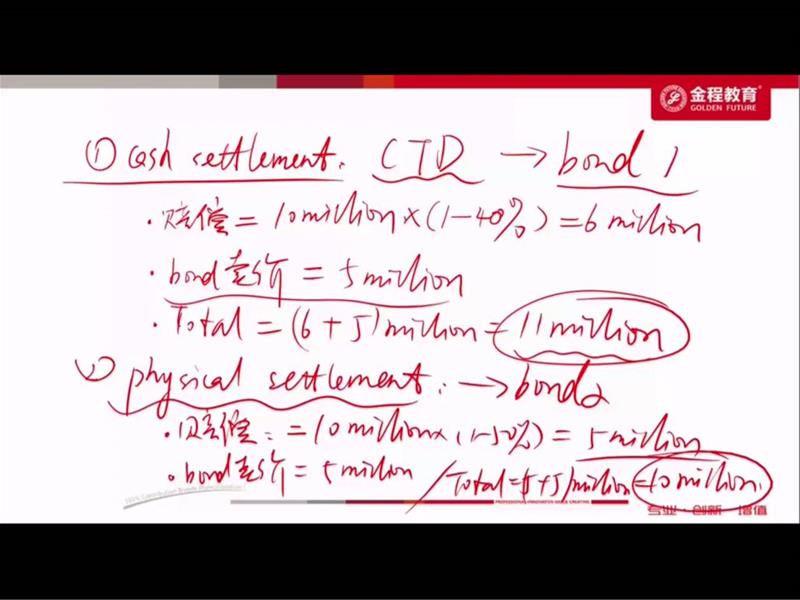 金程教育
GOLDEN FUTURE
① cash settlement. CTD → bond 1
· 赔偿 = 10 million × (1-40%) = 6 million
· bond卖价 = 5 million
· Total = (6+5) million = 11 million
② physical settlement. → bond2
· 赔偿. = 10 million × (1-50%) = 5 million
· bond卖价 = 5 million / Total = (5+5) million = 10 million.
专业·创新·增值